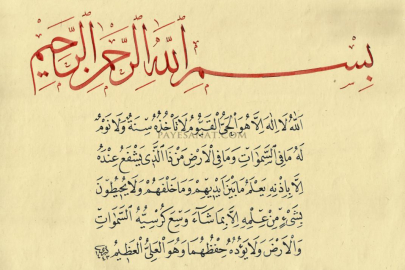 بِسْمِ ٱللَّهِ ٱلرَّحْمَٰنِ ٱلرَّحِيمِ
اَللّٰهُ لَا اِلٰهَ اِلَّا هُوَ الْحَىُّ الْقَيُّومُ لَا تَأْخُذُهُ سِنَةٌ وَلَا نَوْمٌ
PAYESANAT.COM
لَهُ مَا فِى السَّمٰوَاتِ وَمَا فِى الْاَرْضِ مَنْ ذَا الَّذِى يَشْفَعُ عِنْدَهُ
اِلَّا بِاِذْنِهِ يَعْلَمُ مَا بَيْنَ اَيْدِيهِمْ وَمَا خَلْفَهُمْ وَلَا يُحِيطُونَ
بِشَىْءٍ مِنْ عِلْمِهِ اِلَّا بِمَا شَاءَ وَسِعَ كُرْسِيُّهُ السَّمٰوَاتِ
وَالْاَرْضَ وَلَا يَؤُدُهُ حِفْظُهُمَا وَهُوَ الْعَلِىُّ الْعَظِيمُ